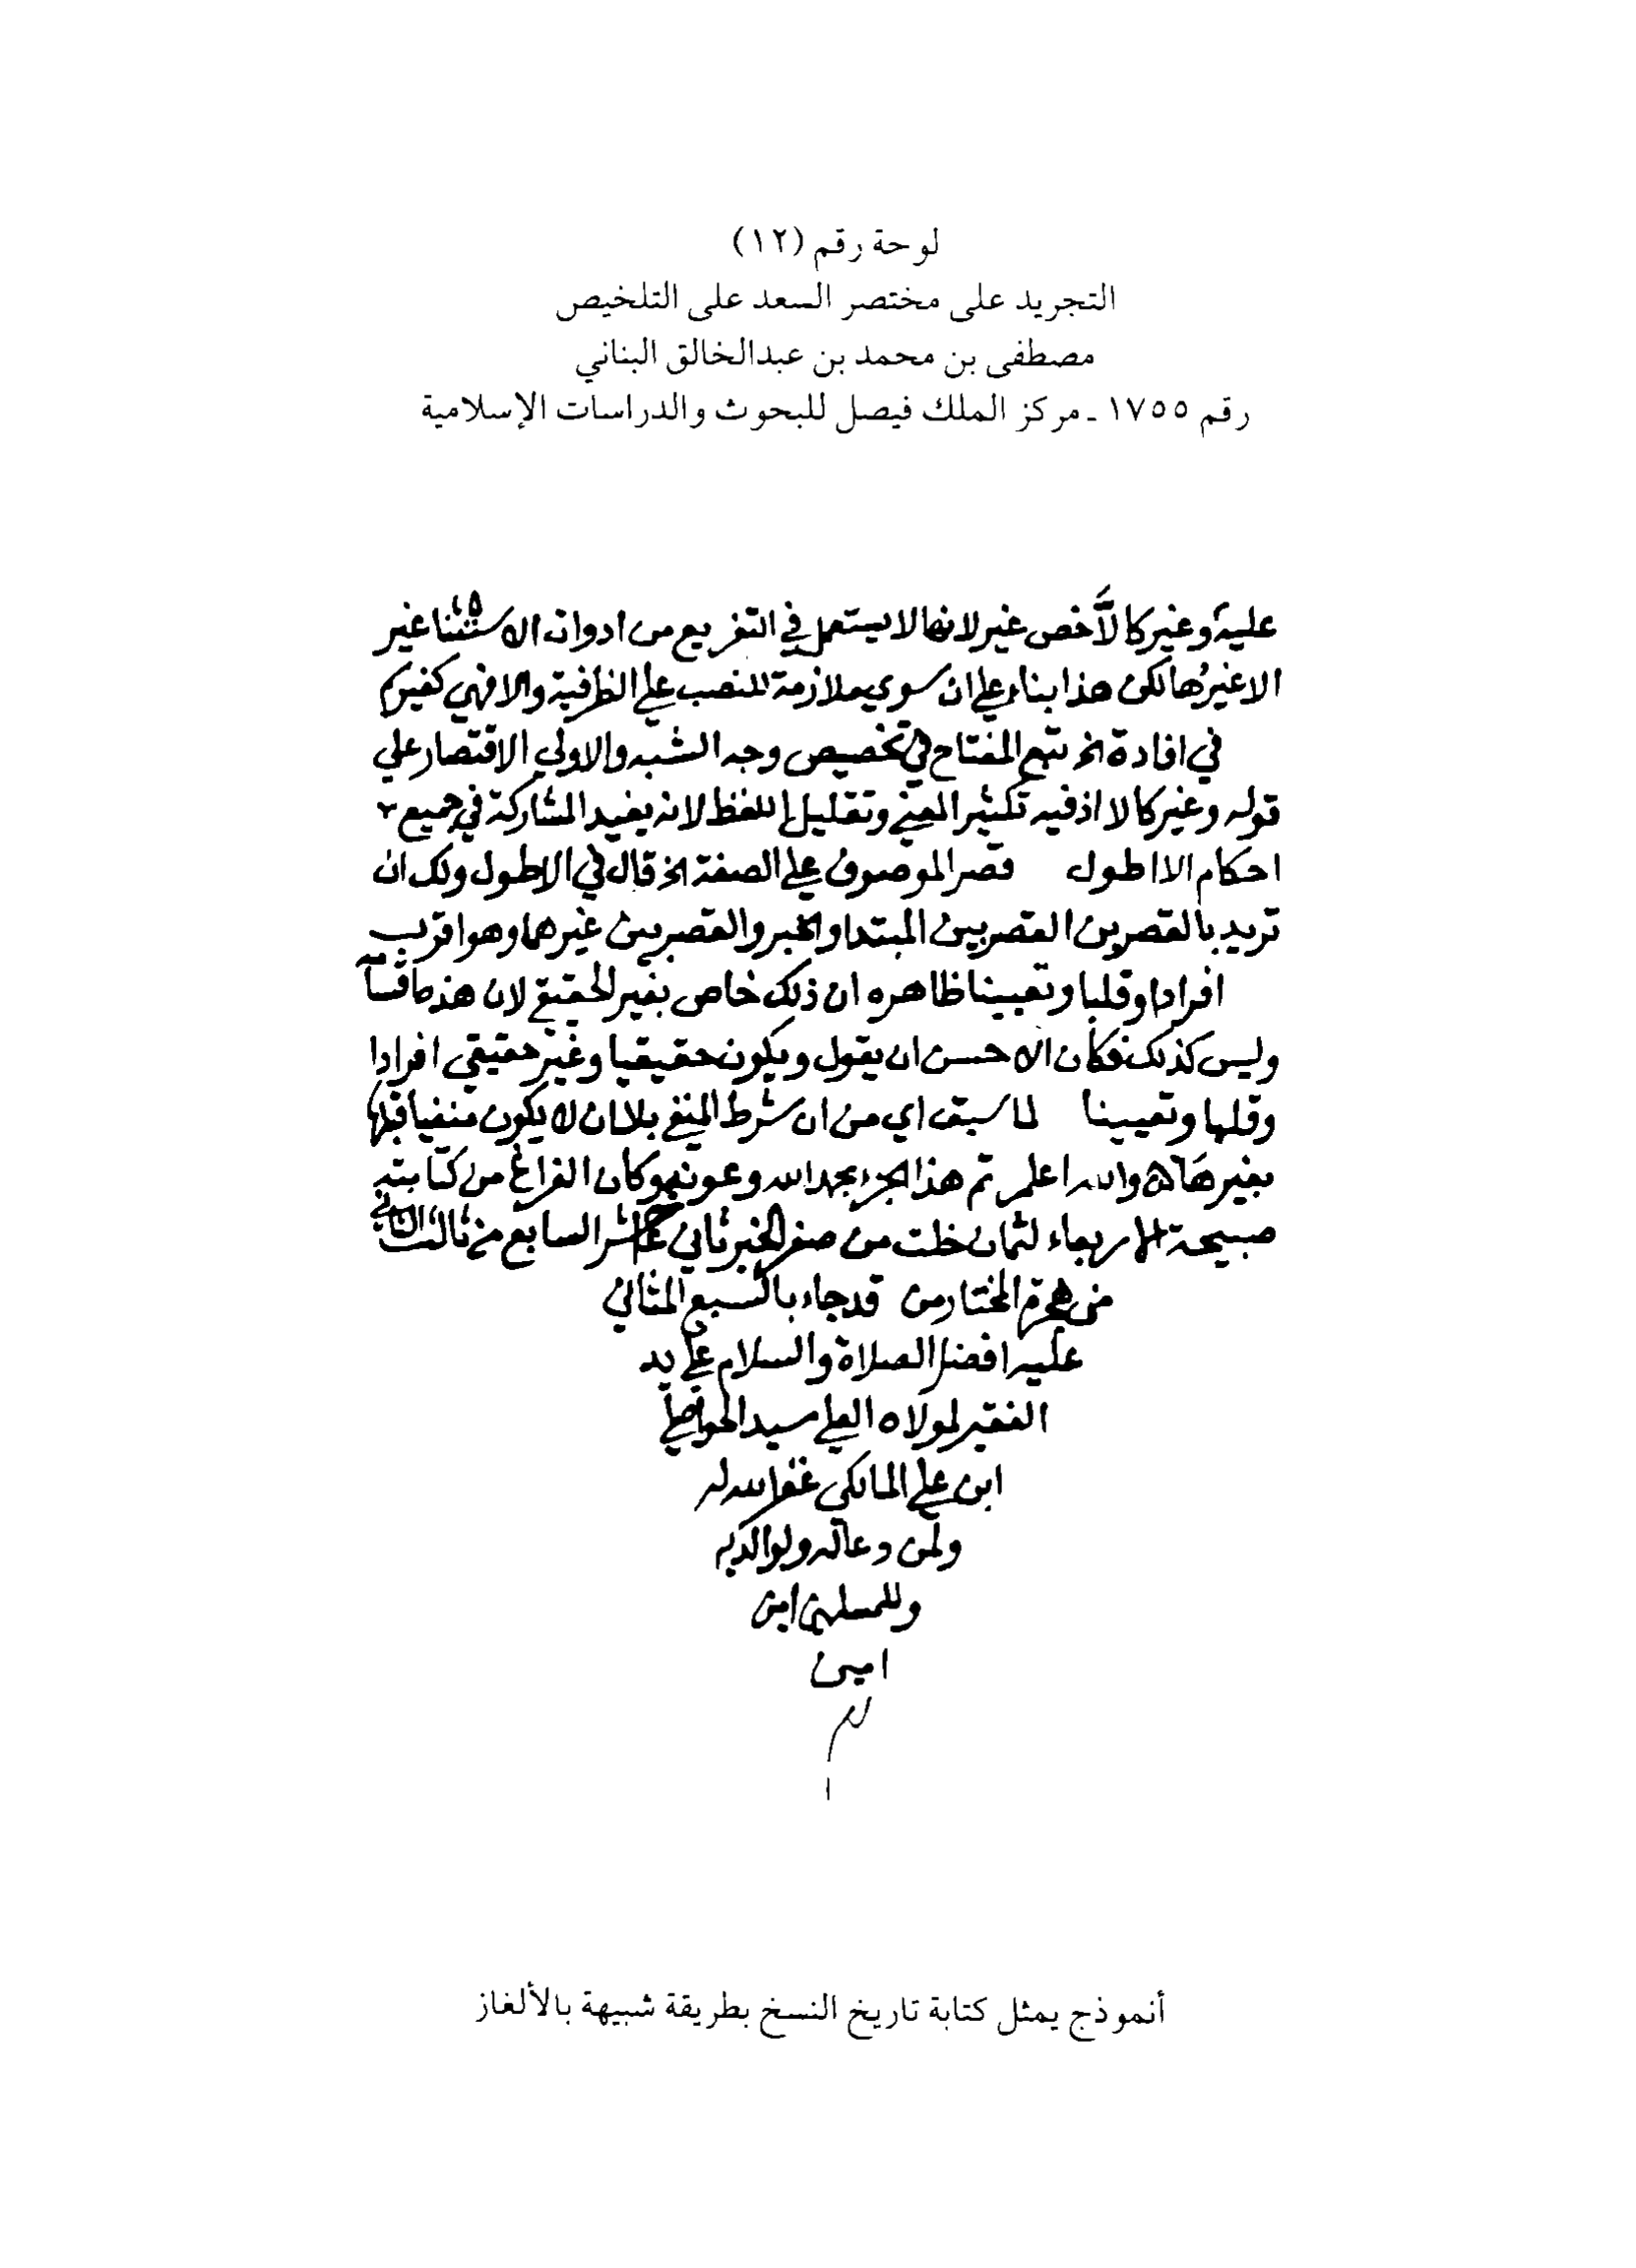 لوحة رقم (١٢)
التجريد على مختصر السعد على التلخيص
مصطفى بن محمد بن عبدالخالق البناني
رقم ١٧٥٥ ـ مركز الملك فيصل للبحوث والدراسات الإسلامية
عليه وغير كالأخص غير لانها لا يستعمل في التفريع من ادوات الاستثنا غير
الا غيرها لكن هذا بناء على ان سوى ملازمة للنصب على الظرفية والا فهي كغير
في افادة الخ تتبع المفتاح في تخصيص وجه الشبه والاولي الاقتصار علي
قوله وغير كالا اذ فيه تكثير المعني وتقليل اللفظ لانه يفيد المشاركة في جميع
احكام الا اطول قصر الموصوف علي الصفة الخ قال في الاطول ولك ان
تريد بالقصرين القصر بين المبتدا والخبر والقصر بين غيرهما وهو اقرب
افرادا وقلبا وتعيينا ظاهره ان ذلك خاص بغير الحقيقي لان هذه اقسامه
وليس كذلك فكان الاحسن ان يقول ويكون حقيقيا وغير حقيقي افرادا
وقلبا وتعيينا لما سبق اي من ان شرط المنفي بلا ان لا يكون منفيا قبلها
بغيرها اه والله اعلم تم هذا الجزء بحمد الله وعونه وكان الفراغ من كتابته
صبيحة الاربعاء لثمان خلت من صفر الخير ثاني عاشر السابع من ثالث الثاني
من هجرة المختار من قد جاء بالسبع المثاني
عليه افضل الصلاة والسلام على يد
الفقير لمولاه العلي سيد
ابن علي المالكي غفر الله له
ولمن دعا له ولوالديه
وللمسلمين امين
امين
أنموذج يمثل كتابة تاريخ النسخ بطريقة شبيهة بالألغاز